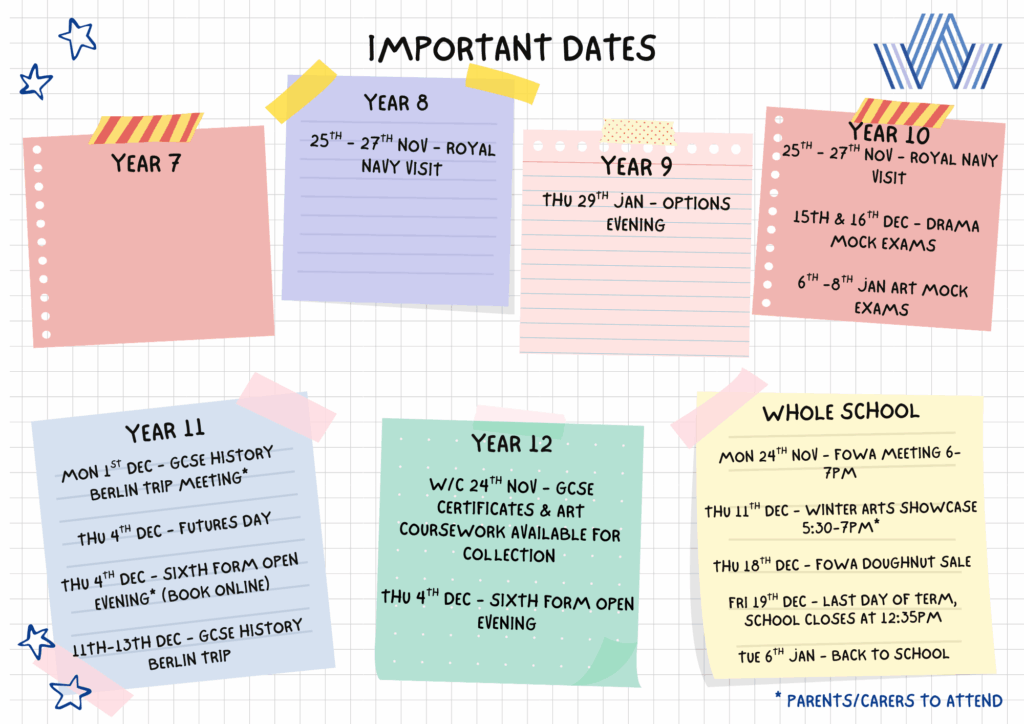 IMPORTANT DATES
YEAR 7
YEAR 8
25TH - 27TH NOV - ROYAL
NAVY VISIT
YEAR 9
THU 29TH JAN - OPTIONS
EVENING
YEAR 10
25TH - 27TH NOV - ROYAL NAVY
VISIT
15TH & 16TH DEC - DRAMA
MOCK EXAMS
6TH -8TH JAN ART MOCK
EXAMS
YEAR 11
MON 1ST DEC - GCSE HISTORY
BERLIN TRIP MEETING*
THU 4TH DEC - FUTURES DAY
THU 4TH DEC - SIXTH FORM OPEN
EVENING* (BOOK ONLINE)
11TH-13TH DEC - GCSE HISTORY
BERLIN TRIP
YEAR 12
W/C 24TH NOV - GCSE
CERTIFICATES & ART
COURSEWORK AVAILABLE FOR
COLLECTION
THU 4TH DEC - SIXTH FORM OPEN
EVENING
WHOLE SCHOOL
MON 24TH NOV - FOWA MEETING 6-
7PM
THU 11TH DEC - WINTER ARTS SHOWCASE
5:30-7PM*
THU 18TH DEC - FOWA DOUGHNUT SALE
FRI 19TH DEC - LAST DAY OF TERM,
SCHOOL CLOSES AT 12:35PM
TUE 6TH JAN - BACK TO SCHOOL
* PARENTS/CARERS TO ATTEND